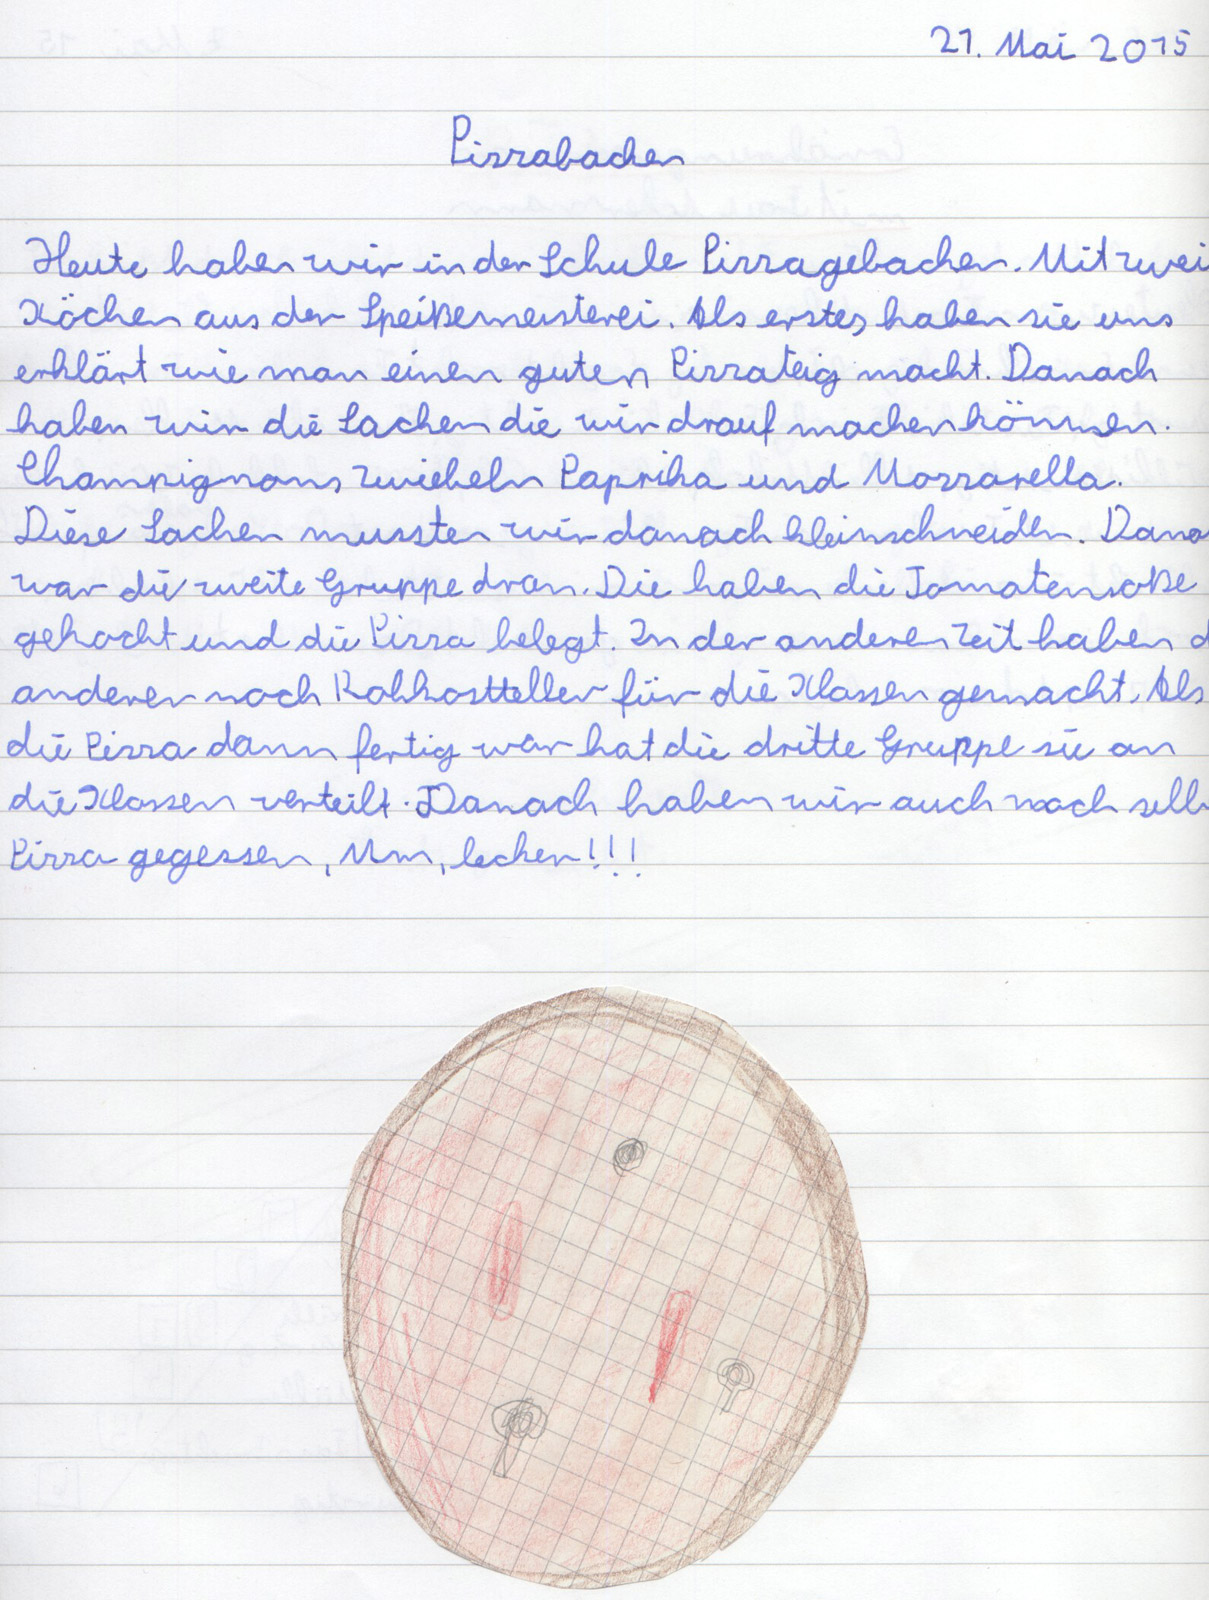 21. Mai 2015
Pizzabacken
Heute haben wir in der Schule Pizzagebacken. Mit zwei
Köchen aus der Speißemeisterei. Als erstes haben sie uns
erklärt wie man einen guten Pizzateig macht. Danach
haben wir die Sachen die wir drauf machen können.
Champignons Zwiebeln Paprika und Mozzarella.
Diese Sachen mussten wir danach kleinschneiden. Dana
war die zweite Gruppe dran. Die haben die Tomatensoße
gekocht und die Pizza belegt. In der anderen Zeit haben d
anderer noch Rohkostteller für die Klassen gemacht. Als
die Pizza dann fertig war hat die dritte Gruppe sie an
die Klassen verteilt. Danach haben wir auch noch selb
Pizza gegessen, Mm, lecker!!!